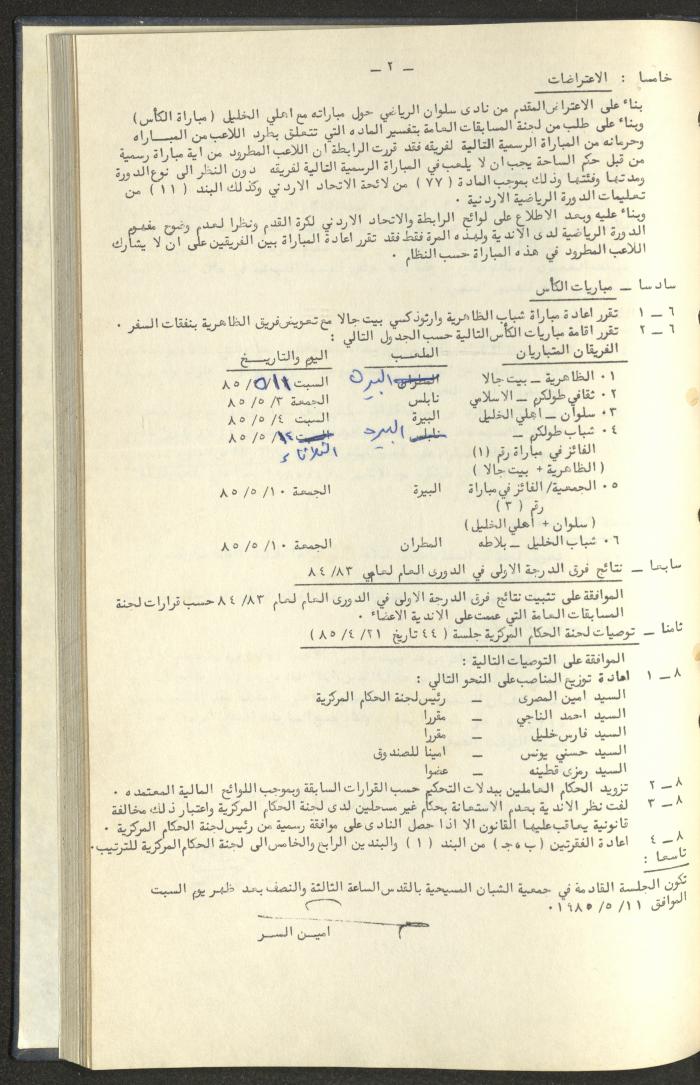 — ٢ —
خامسا : الاعتراضات
بناء على الاعتراض المقدم من نادى سلوان الرياضي حول مباراته مع اهلي الخليل (مباراة الكأس)
وبناء على طلب من لجنة المسابقات العامة بتفسير الماده التي تتعلق بطرد اللاعب من المبــاراه
وحرمانه من المباراة الرسمية التالية لفريقه فقد قررت الرابطة ان اللاعب المطرود من اية مباراة رسمية
من قبل حكم الساحة يجب ان لا يلعب في المباراة الرسمية التالية لفريقه دون النظر الى نوع الدورة
ومدتها وفئتها وذلك بموجب المادة ( ٧٧ ) من لائحة الاتحاد الاردني وكذلك البند ( ١١ ) من
تعليمات الدورة الرياضية الاردنية .
وبناء عليه وبعد الاطلاع على لوائح الرابطة والاتحاد الاردني لكرة القدم ونظرا لعدم وضوح مفهوم
الدورة الرياضية لدى الاندية ولهذه المرة فقط فقد تقرر اعادة المباراة بين الفريقين على ان لا يشارك
اللاعب المطرود في هذه المباراة حسب النظام .
سادسا — مباريات الكأس
٦ — ١ تقرر اعادة مباراة شباب الظاهرية وارثوذكسي بيت جالا مع تعويض فريق الظاهرية بنفقات السفر .
٦ — ٢ تقرر اقامة مباريات الكأس التالية حسب الجدول التالي :
الفريقان المتباريان الملعــب اليوم والتاريــخ
١ . الظاهرية — بيت جالا المطران البيرة السبت ١١/ ٥/ ٨٥
٢ . ثقافي طولكرم — الاسلامي نابلس الجمعة ٣/ ٥/ ٨٥
٣ . سلوان — اهلي الخليل البيرة السبت ٤/ ٥/ ٨٥
٤ . شباب طولكرم — نابلس البيرة السبت ١٤/ ٥/ ٨٥
الفائز في مباراة رقم (١) الثلاثاء
( الظاهرية + بيت جالا )
٥ . الجمعية/ الفائز في مباراة البيرة الجمعة ١٠/ ٥/ ٨٥
رقم ( ٣ )
( سلوان + اهلي الخليل)
٦ . شباب الخليل — بلاطه المطران الجمعة ١٠/ ٥/ ٨٥
سابعا — نتائج فرق الدرجة الاولى في الدورى العام لعامي ٨٣/ ٨٤
الموافقة على تثبيت نتائج فرق الدرجة الاولى في الدورى العام لعام ٨٣/ ٨٤ حسب قرارات لجنة
المسابقات العامة التي عممت على الاندية الاعضاء .
ثامنا — توصيات لجنة الحكام المركزية جلسة ( ٤٤ تاريخ ٢١/ ٤/ ٨٥ )
الموافقة على التوصيات التالية :
٨ — ١ اعادة توزيع المناصب على النحو التالي :
السيد امين المصرى — رئيس لجنة الحكام المركزية
السيد احمد الناجي — مقررا
السيد فارس خليل — مقررا
السيد حسني يونس — امينا للصندوق
السيد رمزى قطينه — عضوا
٨ — ٢ تزويد الحكام العاملين ببدلات التحكيم حسب القرارات السابقة وبموجب اللوائح المالية المعتمده .
٨ — ٣ لفت نظر الاندية بعدم الاستعانة بحكام غير مسجلين لدى لجنة الحكام المركزية واعتبار ذلك مخالفة
قانونية يعاقب عليها القانون الا اذا حصل النادى على موافقة رسمية من رئيس لجنة الحكام المركزية .
٨ — ٤ اعادة الفقرتين ( ب ، ج ) من البند ( ١ ) والبندين الرابع والخامس الى لجنة الحكام المركزية للترتيب .
تاسعا :
تكون الجلسة القادمة في جمعية الشبان المسيحية بالقدس الساعة الثالثة والنصف بعد ظهر يوم السبت
الموافق ١١/ ٥/ ١٩٨٥ .
اميــن الســر